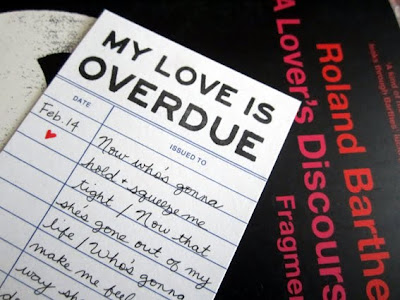 MY LOVE IS
OVERDUE
DATE
ISSUED TO
Feb. 14
Now who's gonna
hold + squeeze me
tight / Now that
she's gone out of my
life / Who's gonna
make me feel
way sh
Roland Barthe
A Lover's Discours
Fragmen